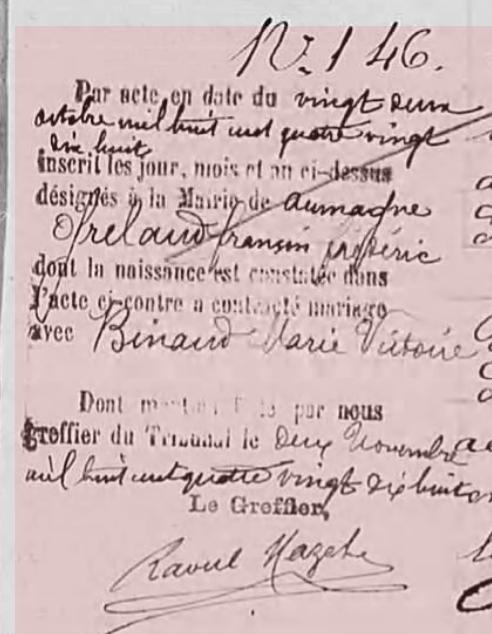 N° 146.
Par acte en date du vingt deux
octobre mil huit cent quatre vingt
dix huit
inscrit les jour, mois et an ci-dessus
désignés à la Mairie de Aumagne
Frelaud françois frédéric
dont la naissance est constatée dans
l'acte ci-contre a contracté mariage
avec Binaud Marie Victoire
Dont mention faite par nous
Greffier du Tribunal le deux Novembre
mil huit cent quatre vingt dix huit
Le Greffier,
Raoul